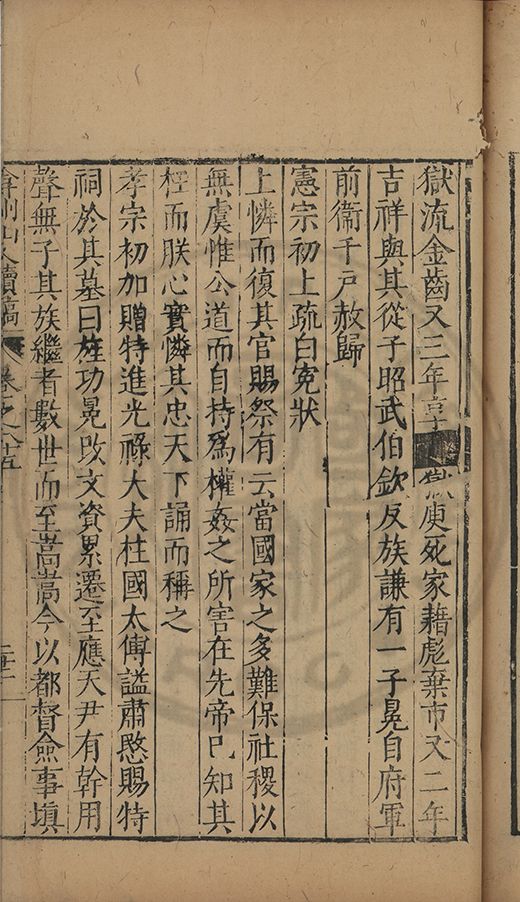 獄流金齒又三年亨獄庾死家藉彪棄市又二年
吉祥與其從子昭武伯欽反族謙有一子冕自府軍
前衞千戶赦歸
憲宗初上疏白寃狀
上憐而復其官賜祭有云當國家之多難保社稷以
無虞惟公道而自持爲權姦之所害在先帝已知其
枉而朕心實憐其忠天下誦而稱之
孝宗初加贈特進光祿大夫柱國太傅謚肅愍賜特
祠於其墓曰旌功冕改文資累遷至應天尹有幹用
聲無子其族繼者數世而至嵩嵩今以都督僉事塡
弇州山人續稿 卷之八十五 二十一